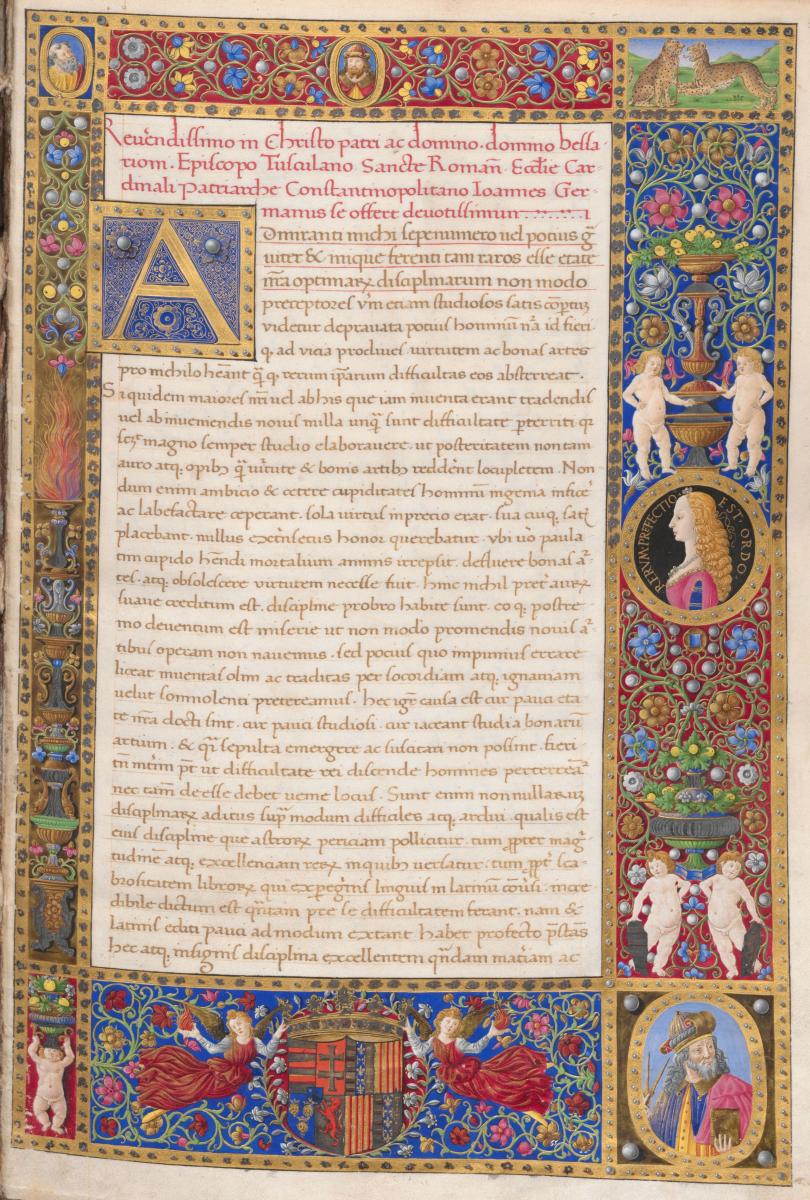 Reuerendissimo in Christo patri ac domino. domino bessa-
rioni. Episcopo Tusculano Sancte Romañ. Ecclie Car-
dinali Patriarche Constantinopolitano Ioannes Ger-
manus se offert deuotissimum
A
Dmiranti michi sepenumero uel potius g̃
uiter & inique ferenti tam raros esse etate
nr̃a optimarꝝ disciplinarum non modo
preceptores vm̃ etiam studiosos satis
videtur deprauata potius hominũ nã id fieri
q. ad vicia procliues. virtutem ac bonas artes
pro nichilo hẽant q̃ q. rerum ip̃arum difficultas eos absterreat.
Siquidem maiores nr̃i uel ab his que iam inuenta erant tradendis
uel ab inueniendis nouis nulla unq̃ sunt difficultate perterriti qr
magno semper studio elaborauere. ut posteritatem non tam
auro atq. opibꝫ q̃ uirtute & bonis artibꝫ redderent locupletem. Non
dum enim ambicio & cetere cupiditates hominũ ingenia
ac labefactare ceperant. sola virtus in precio erat. sua cuiq. satis
placebant. nullus extrinsecus honor querebatur. vbi uo paula
tim cupido hẽndi mortalium animis irrepsit. defluere bonas ar̃-
tes. atq. obsolescere virtutem necesse fuit. hinc nichil preter aurum
suaue creditum est. discipline probro habite sunt. eo q. postre
mo deuentum est miserie ut non modo promendis nouis ar̃-
tibus operam non nauemus. sed pocius quo impunius errare
liceat inuentas olim ac traditas per socordiam atq. ignauiam
uelut somnolenti pretereamus. hec igr̃ causa est cur pauci eta
te nr̃a docti sint. cur pauci studiosi. cur iaceant studia bonarũ
artium. & q̃ sepulta emergere ac suscitari non possint. fieri
tñ ut difficultate rei discende homines perterreã
nec tam̃ deesse debet uenie locus. Sunt enim non nullarum
disciplinarꝝ aditus sup̃ modum difficiles atq. ardui. qualis est
eius discipline que astrorꝝ periciam pollicitur. tum propter mag̃-
tudinẽ atq. excellenciam rerꝝ in quibus uersatur. tum propter sca-
brositatem librorꝝ qui ex peregrinis linguis in latinũ conuersi. incre
dibile dictum est quantam pre se difficultatem ferant. nam &
latinis editi pauci ad modum extant. habet profecto prestans
hec atq. insignis disciplina excellentem quandam materiam ac
RERVM PREFECTIO EST ORDO